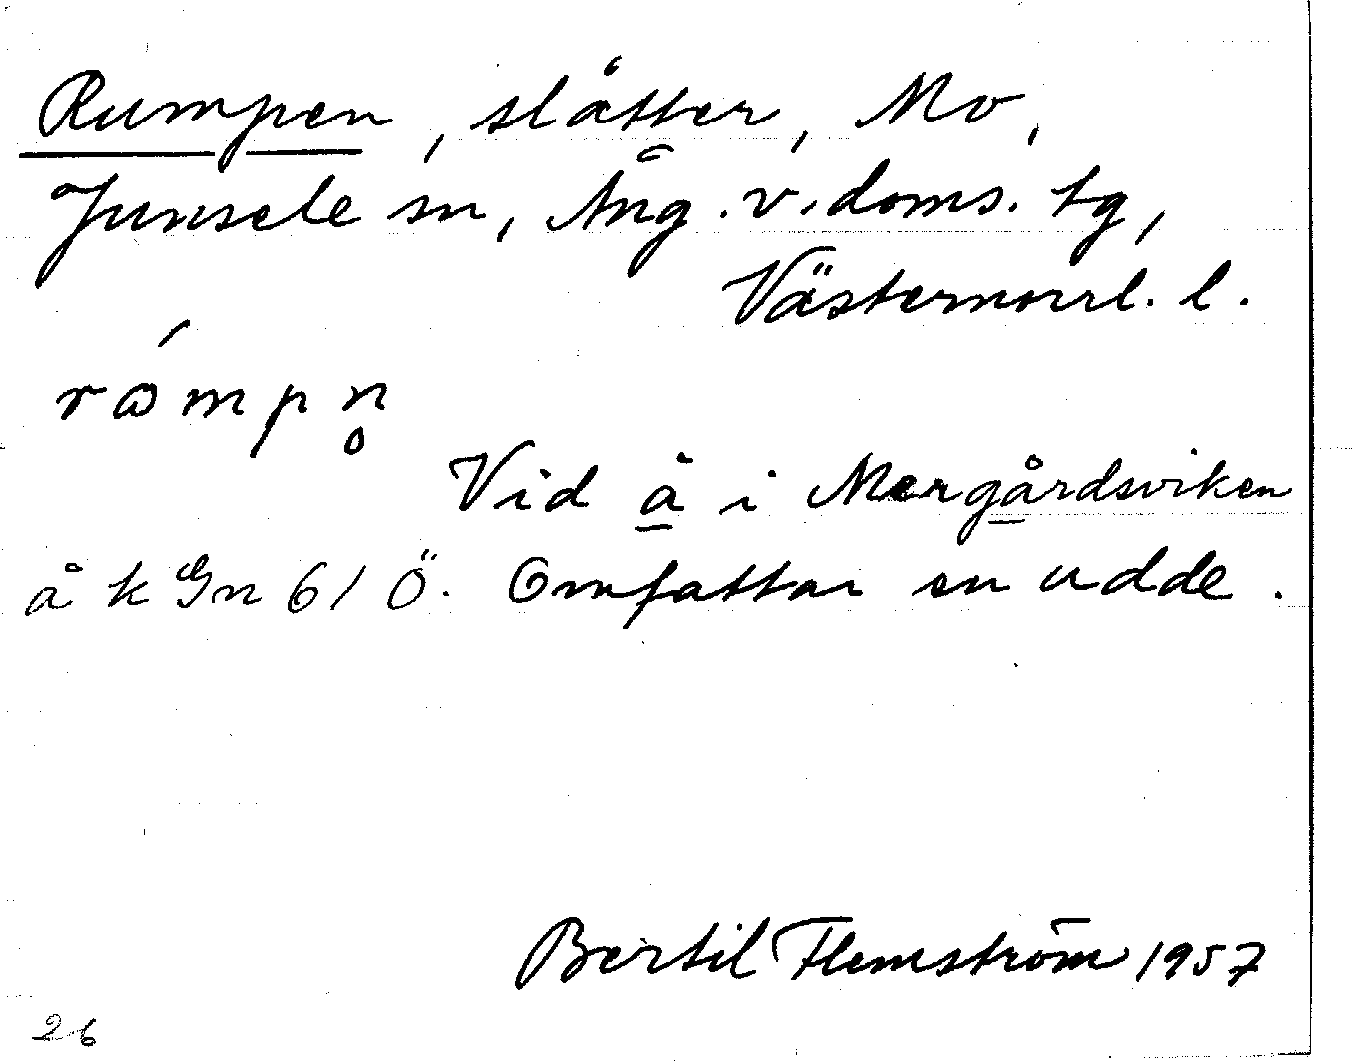 Rumpen, slåtter, Mo,
Junsele sn, Ång. v. doms. tg,
Västernorrl. l.
rɷ́mpn̥
Vid å i Mergårdsviken
å k Gn 61 Ö. Omfattar en udde.
Bertil Flemström 1957
26